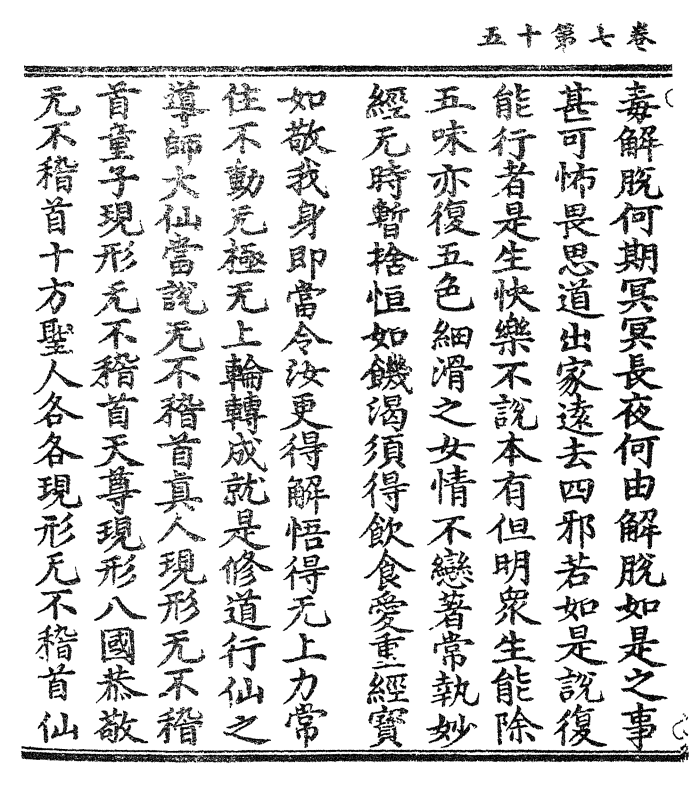 卷七第十五
毒解脫何期冥冥長夜何由解脫如是之事
甚可怖畏思道出家遠去四邪若如是說復
能行者是生快樂不說本有但明衆生能除
五味亦復五色細滑之女情不戀著常執妙
經无時暫捨恒如饑渴須得飲食愛重經寶
如敬我身即當令汝更得解悟得无上力常
住不動无極无上輪轉成就是修道行仙之
導師大仙當說无不稽首真人現形无不稽
首童子現形无不稽首天尊現形八國恭敬
无不稽首十方聖人各各現形无不稽首仙